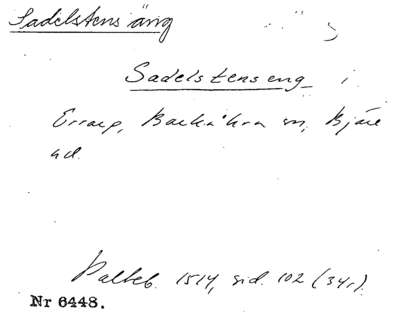 Sadelstens äng
Sadelstens eng i
Errarp, Barkåkra sn, Bjäre
hd.
Palteb. 1514, sid. 102 (34r).
Nr 6448.